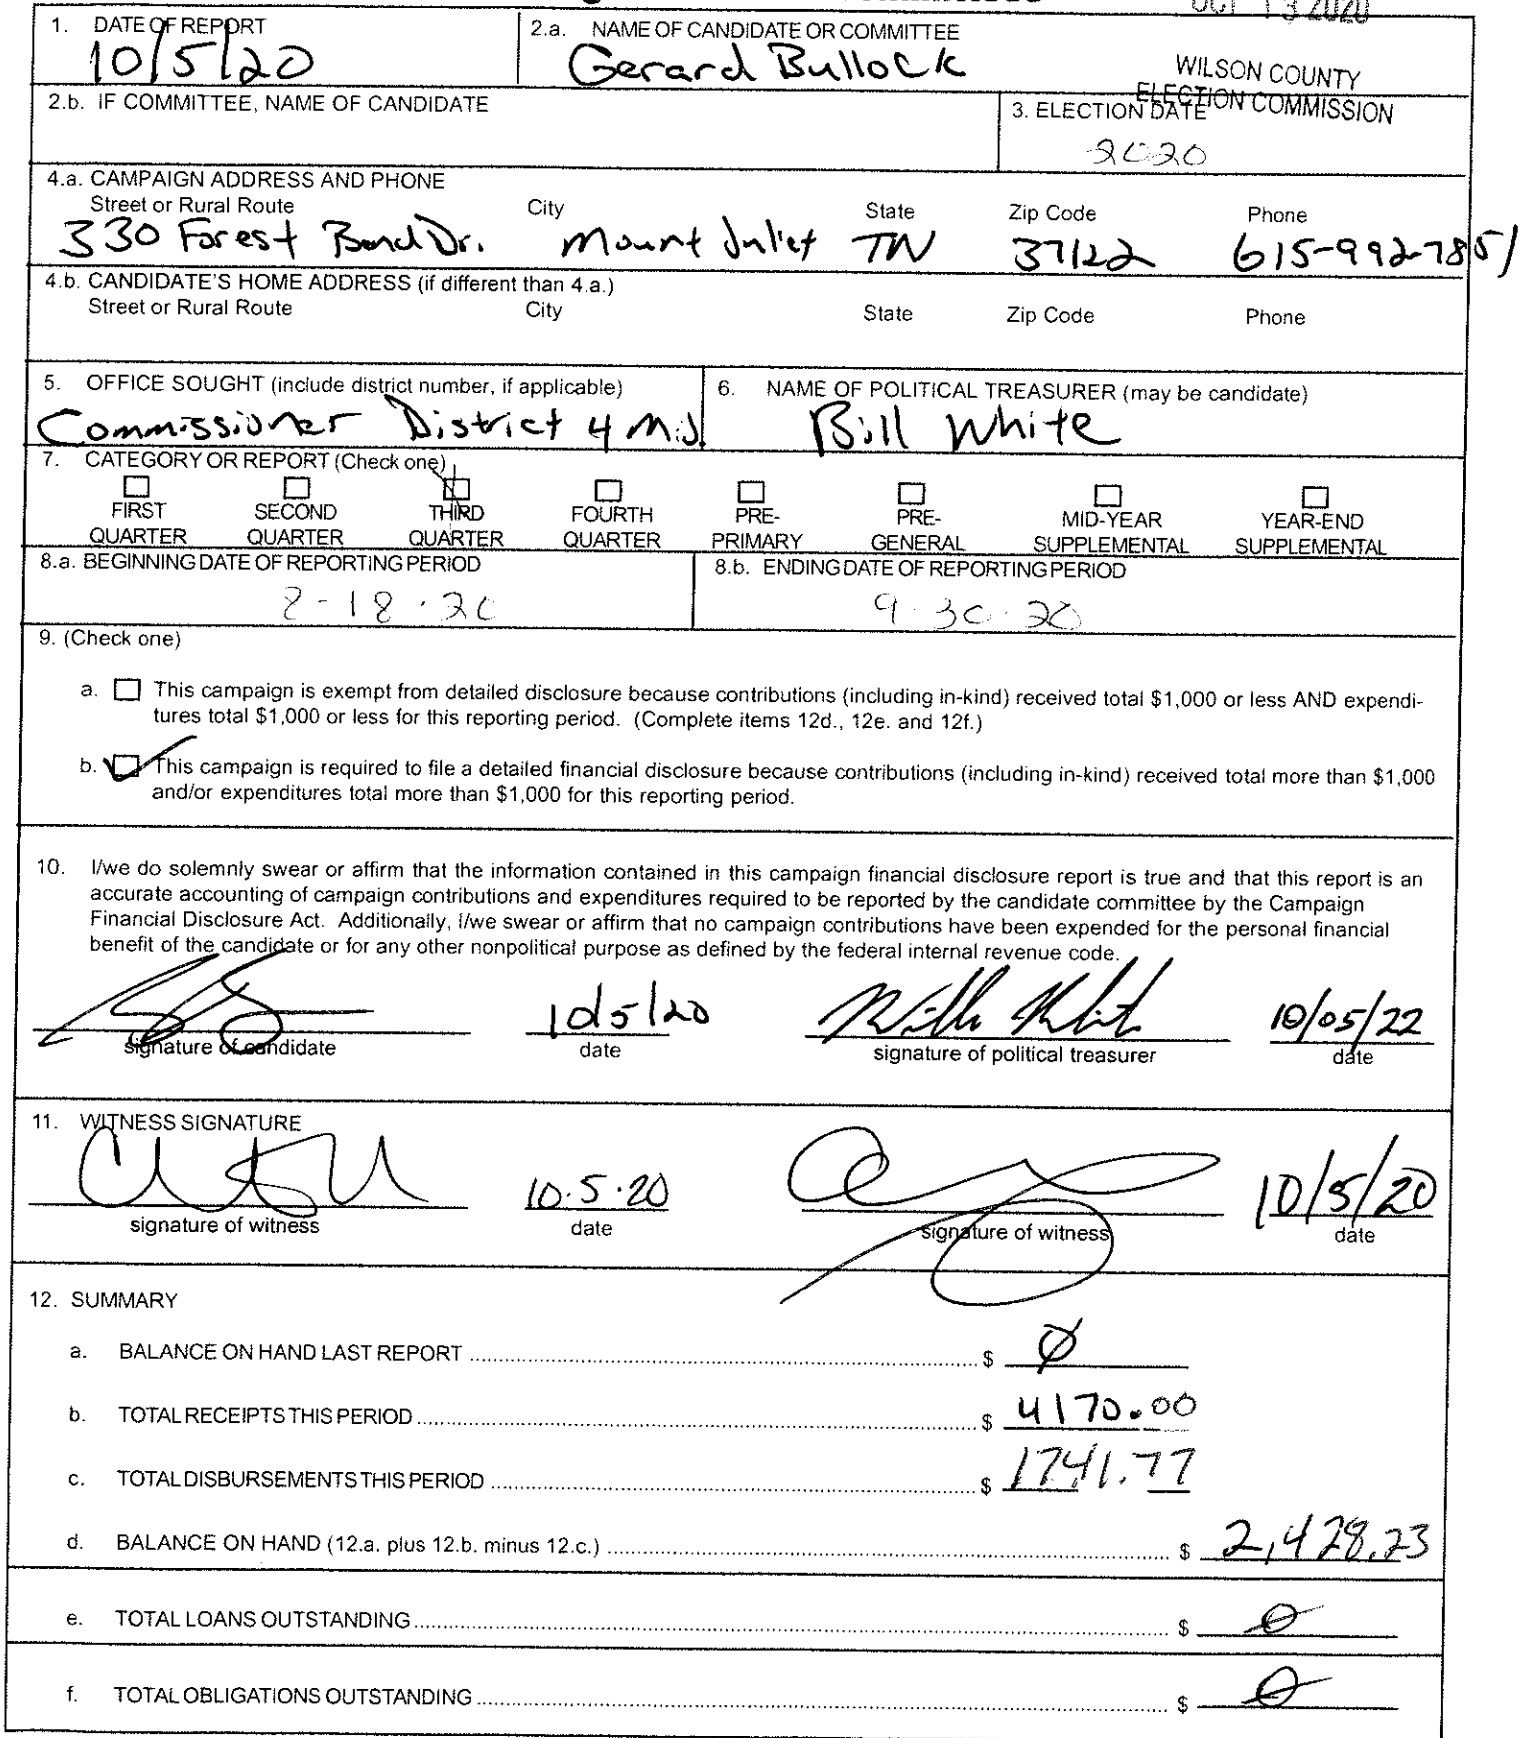 OCT 13 2020
1. DATE OF REPORT
10/5/20
2.a. NAME OF CANDIDATE OR COMMITTEE
Gerard Bullock
WILSON COUNTY
ELECTION COMMISSION
2.b. IF COMMITTEE, NAME OF CANDIDATE
3. ELECTION DATE
2020
4.a. CAMPAIGN ADDRESS AND PHONE
Street or Rural Route City State Zip Code Phone
330 Forest Bend Dr. Mount Juliet TN 37122 615-992-7851
4.b. CANDIDATE'S HOME ADDRESS (if different than 4.a.)
Street or Rural Route City State Zip Code Phone
5. OFFICE SOUGHT (include district number, if applicable)
Commissioner District 4 M.J.
6. NAME OF POLITICAL TREASURER (may be candidate)
Bill White
7. CATEGORY OR REPORT (Check one)
FIRST QUARTER
SECOND QUARTER
THIRD QUARTER
FOURTH QUARTER
PRE-PRIMARY
PRE-GENERAL
MID-YEAR SUPPLEMENTAL
YEAR-END SUPPLEMENTAL
8.a. BEGINNING DATE OF REPORTING PERIOD
8-18-20
8.b. ENDING DATE OF REPORTING PERIOD
9-30-20
9. (Check one)
a. This campaign is exempt from detailed disclosure because contributions (including in-kind) received total $1,000 or less AND expendi-
tures total $1,000 or less for this reporting period. (Complete items 12d., 12e. and 12f.)
b. This campaign is required to file a detailed financial disclosure because contributions (including in-kind) received total more than $1,000
and/or expenditures total more than $1,000 for this reporting period.
10. I/we do solemnly swear or affirm that the information contained in this campaign financial disclosure report is true and that this report is an
accurate accounting of campaign contributions and expenditures required to be reported by the candidate committee by the Campaign
Financial Disclosure Act. Additionally, I/we swear or affirm that no campaign contributions have been expended for the personal financial
benefit of the candidate or for any other nonpolitical purpose as defined by the federal internal revenue code.
10/5/20 10/05/22
signature of candidate date signature of political treasurer date
11. WITNESS SIGNATURE
10.5.20 10/5/20
signature of witness date signature of witness date
12. SUMMARY
a. BALANCE ON HAND LAST REPORT $ 0
b. TOTAL RECEIPTS THIS PERIOD $ 4170.00
c. TOTAL DISBURSEMENTS THIS PERIOD $ 1741.77
d. BALANCE ON HAND (12.a. plus 12.b. minus 12.c.) $ 2,428.23
e. TOTAL LOANS OUTSTANDING $ 0
f. TOTAL OBLIGATIONS OUTSTANDING $ 0